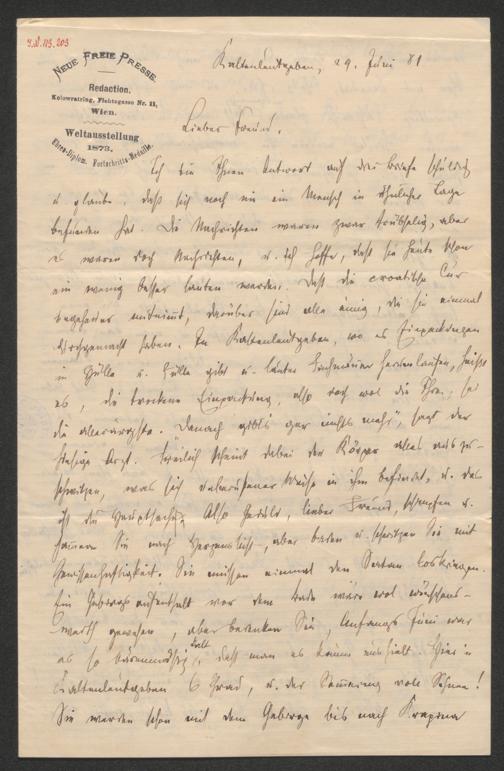 I.N. 115.203
NEUE FREIE PRESSE.
Redaction.
Kolowratring, Fichtegasse Nr. 11,
Wien.
Weltausstellung
1873.
Ehren-Diplom. Fortschritts-Medaille.
Kaltenleutgeben, 29. Juni 81
Lieber Freund.
Ich bin Ihnen Antwort auf drei Briefe schuldig
u. glaube, daß sich noch nie ein Mensch in ähnlicher Lage
befunden hat. Die Nachrichten waren zwar trübselig, aber
es waren doch Nachrichten, u. ich hoffe, daß sie heute schon
ein wenig besser lauten werden. Daß die croatische Cur
mitnimmt, darüber sind alle einig, die sie einmal
durchgemacht haben. In Kaltenleutgeben, wo es Einpackungen
in Hülle u. Fülle gibt u. lauter herumlaufen, heißt
es, die trockene Einpackung, also doch wol die Ihre, sei
die allerärgste. „Danach gibt's gar nichts mehr", sagt der
hiesige Arzt. Freilich scheint dabei der Körper alles auszu-
schwitzen, was sich Weise in ihm befindet, u. das
ist die Hauptsache. Also Geduld, lieber Freund, schimpfen u.
jammern Sie nach Herzenslust, aber baden u. schwitzen Sie mit
Gewissenhaftigkeit. Sie müssen einmal den Satan loskriegen.
Ein Gebirgsaufenthalt vor dem Bade wäre wol wünschens-
werth gewesen, aber bedenken Sie, Anfangs Juni war
es so kalt, daß man es kaum aushielt. Hier in
Kaltenleutgeben 6 Grad, u. der Semmering voll Schnee!
Sie werden schon mit dem Gebirge bis nach Krapina